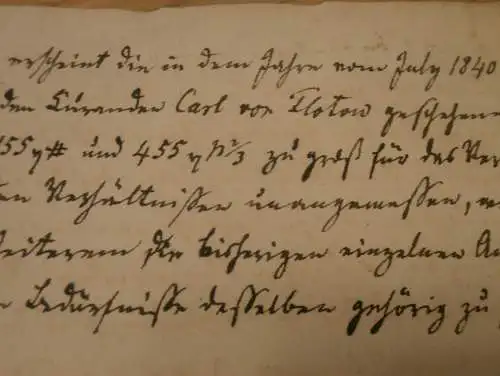 erscheint die in dem Jahre vom July 1840
den Curanden Carl von Flotow geschehene
und 455 zu groß für das Ver
en Verhältnissen unangemessen,
eiterem die bisherigen einzelnen
Bedürfnisse desselben gehörig zu